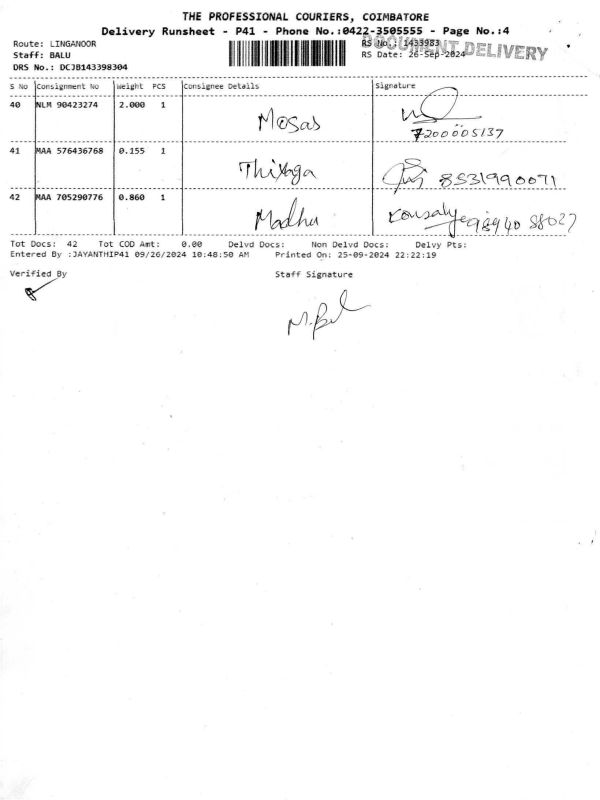 THE PROFESSIONAL COURIERS, COIMBATORE
Delivery Runsheet - P41 - Phone No.:0422-3505555 - Page No.:4
Route: LINGANOOR
RS No.: 1433983
DOCUMENT DELIVERY
Staff: BALU
RS Date: 26-Sep-2024
DRS No.: DCJB143398304
S No Consignment No Weight PCS Consignee Details Signature
40 NLM 90423274 2.000 1 Mosas
7200005137
41 MAA 576436768 0.155 1 Thiyaga 8531990071
42 MAA 705290776 0.860 1 Madhu Kousalye 98940 88027
Tot Docs: 42 Tot COD Amt: 0.00 Delvd Docs: Non Delvd Docs: Delvy Pts:
Entered By :JAYANTHIP41 09/26/2024 10:48:50 AM Printed On: 25-09-2024 22:22:19
Verified By Staff Signature